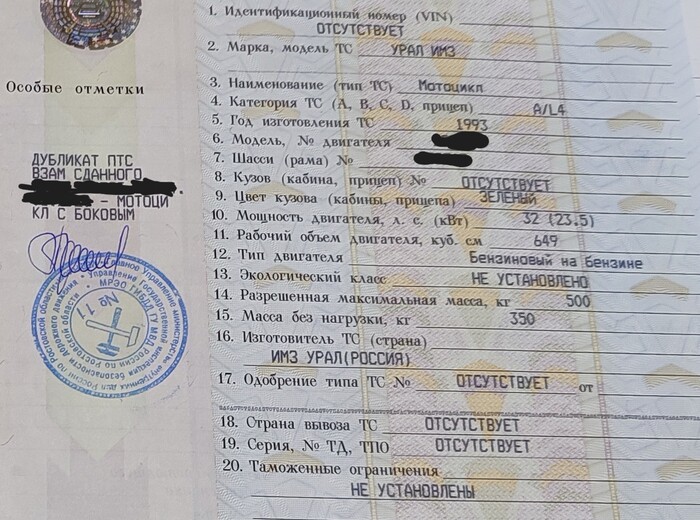 Особые отметки
ДУБЛИКАТ ПТС
ВЗАМ СДАННОГО
- МОТОЦИ
КЛ С БОКОВЫМ
МРЭО ГИБДД ГУ МВД России по Ростовской области
№ 11
1. Идентификационный номер (VIN)
ОТСУТСТВУЕТ
2. Марка, модель ТС УРАЛ ИМЗ
3. Наименование (тип ТС) Мотоцикл
4. Категория ТС (А, В, С, D, прицеп) А/L4
5. Год изготовления ТС 1993
6. Модель, № двигателя
7. Шасси (рама) №
8. Кузов (кабина, прицеп) № ОТСУТСТВУЕТ
9. Цвет кузова (кабины, прицепа) ЗЕЛЕНЫЙ
10. Мощность двигателя, л. с. (кВт) 32 (23.5)
11. Рабочий объем двигателя, куб. см 649
12. Тип двигателя Бензиновый на бензине
13. Экологический класс НЕ УСТАНОВЛЕНО
14. Разрешенная максимальная масса, кг 500
15. Масса без нагрузки, кг 350
16. Изготовитель ТС (страна)
ИМЗ УРАЛ(РОССИЯ)
17. Одобрение типа ТС № ОТСУТСТВУЕТ от
18. Страна вывоза ТС ОТСУТСТВУЕТ
19. Серия, № ТД, ТПО ОТСУТСТВУЕТ
20. Таможенные ограничения
НЕ УСТАНОВЛЕНЫ